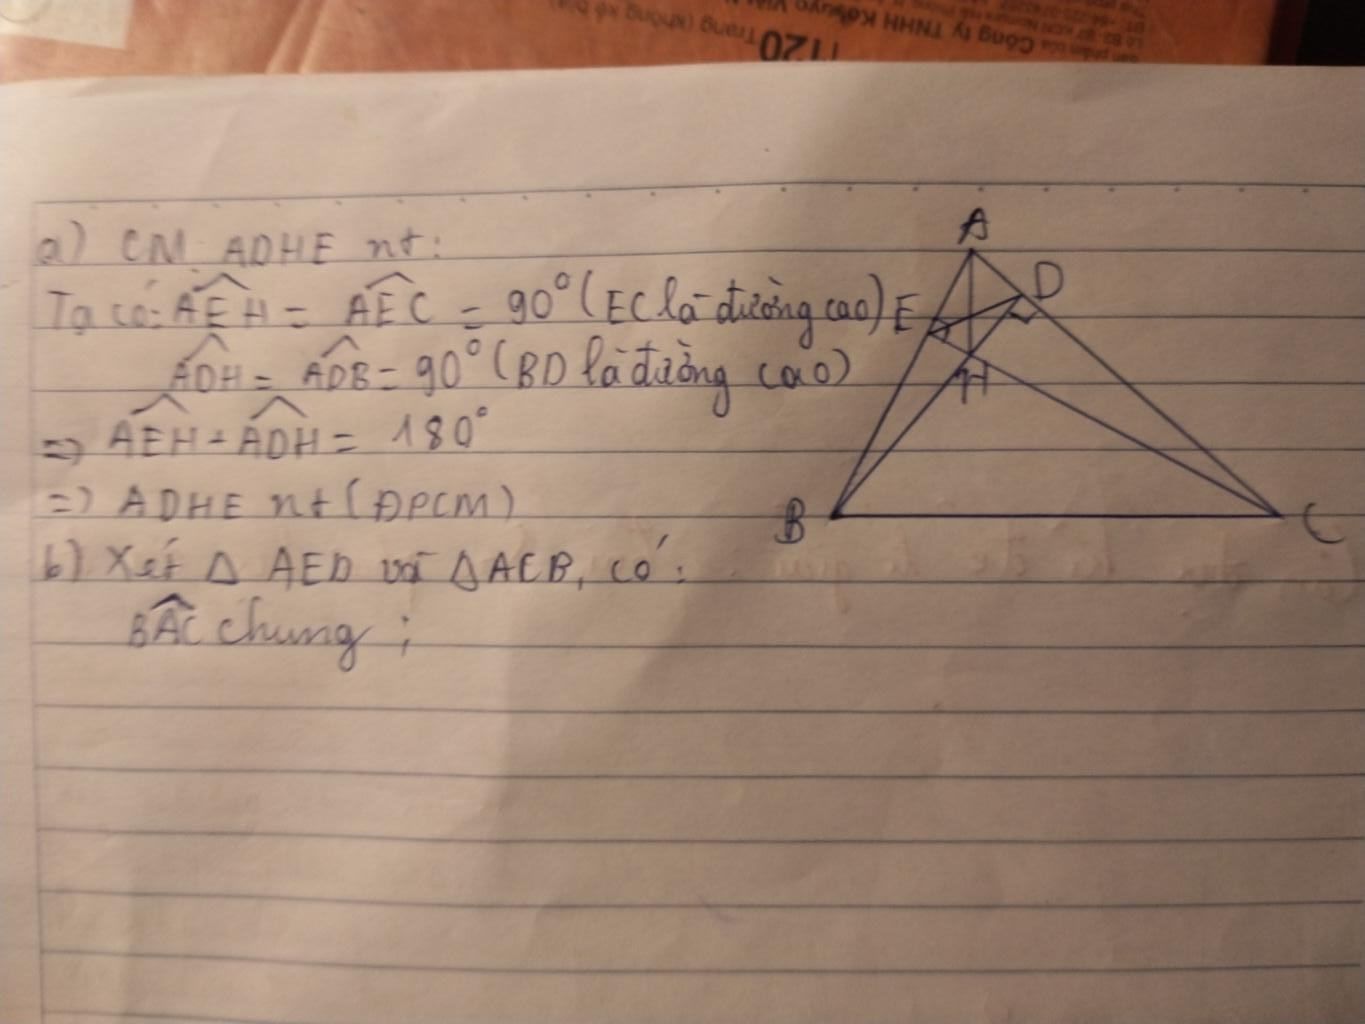 120 Trang (không kể bìa)
Công ty TNHH
a) CM ADHE nt:
Ta có: AEH = AEC = 90° (EC là đường cao)
ADH = ADB = 90° (BD là đường cao)
=> AEH + ADH = 180°
=> ADHE nt (ĐPCM)
b) Xét Δ AED và ΔACB, có:
BAC chung;
A
E
D
H
B
C